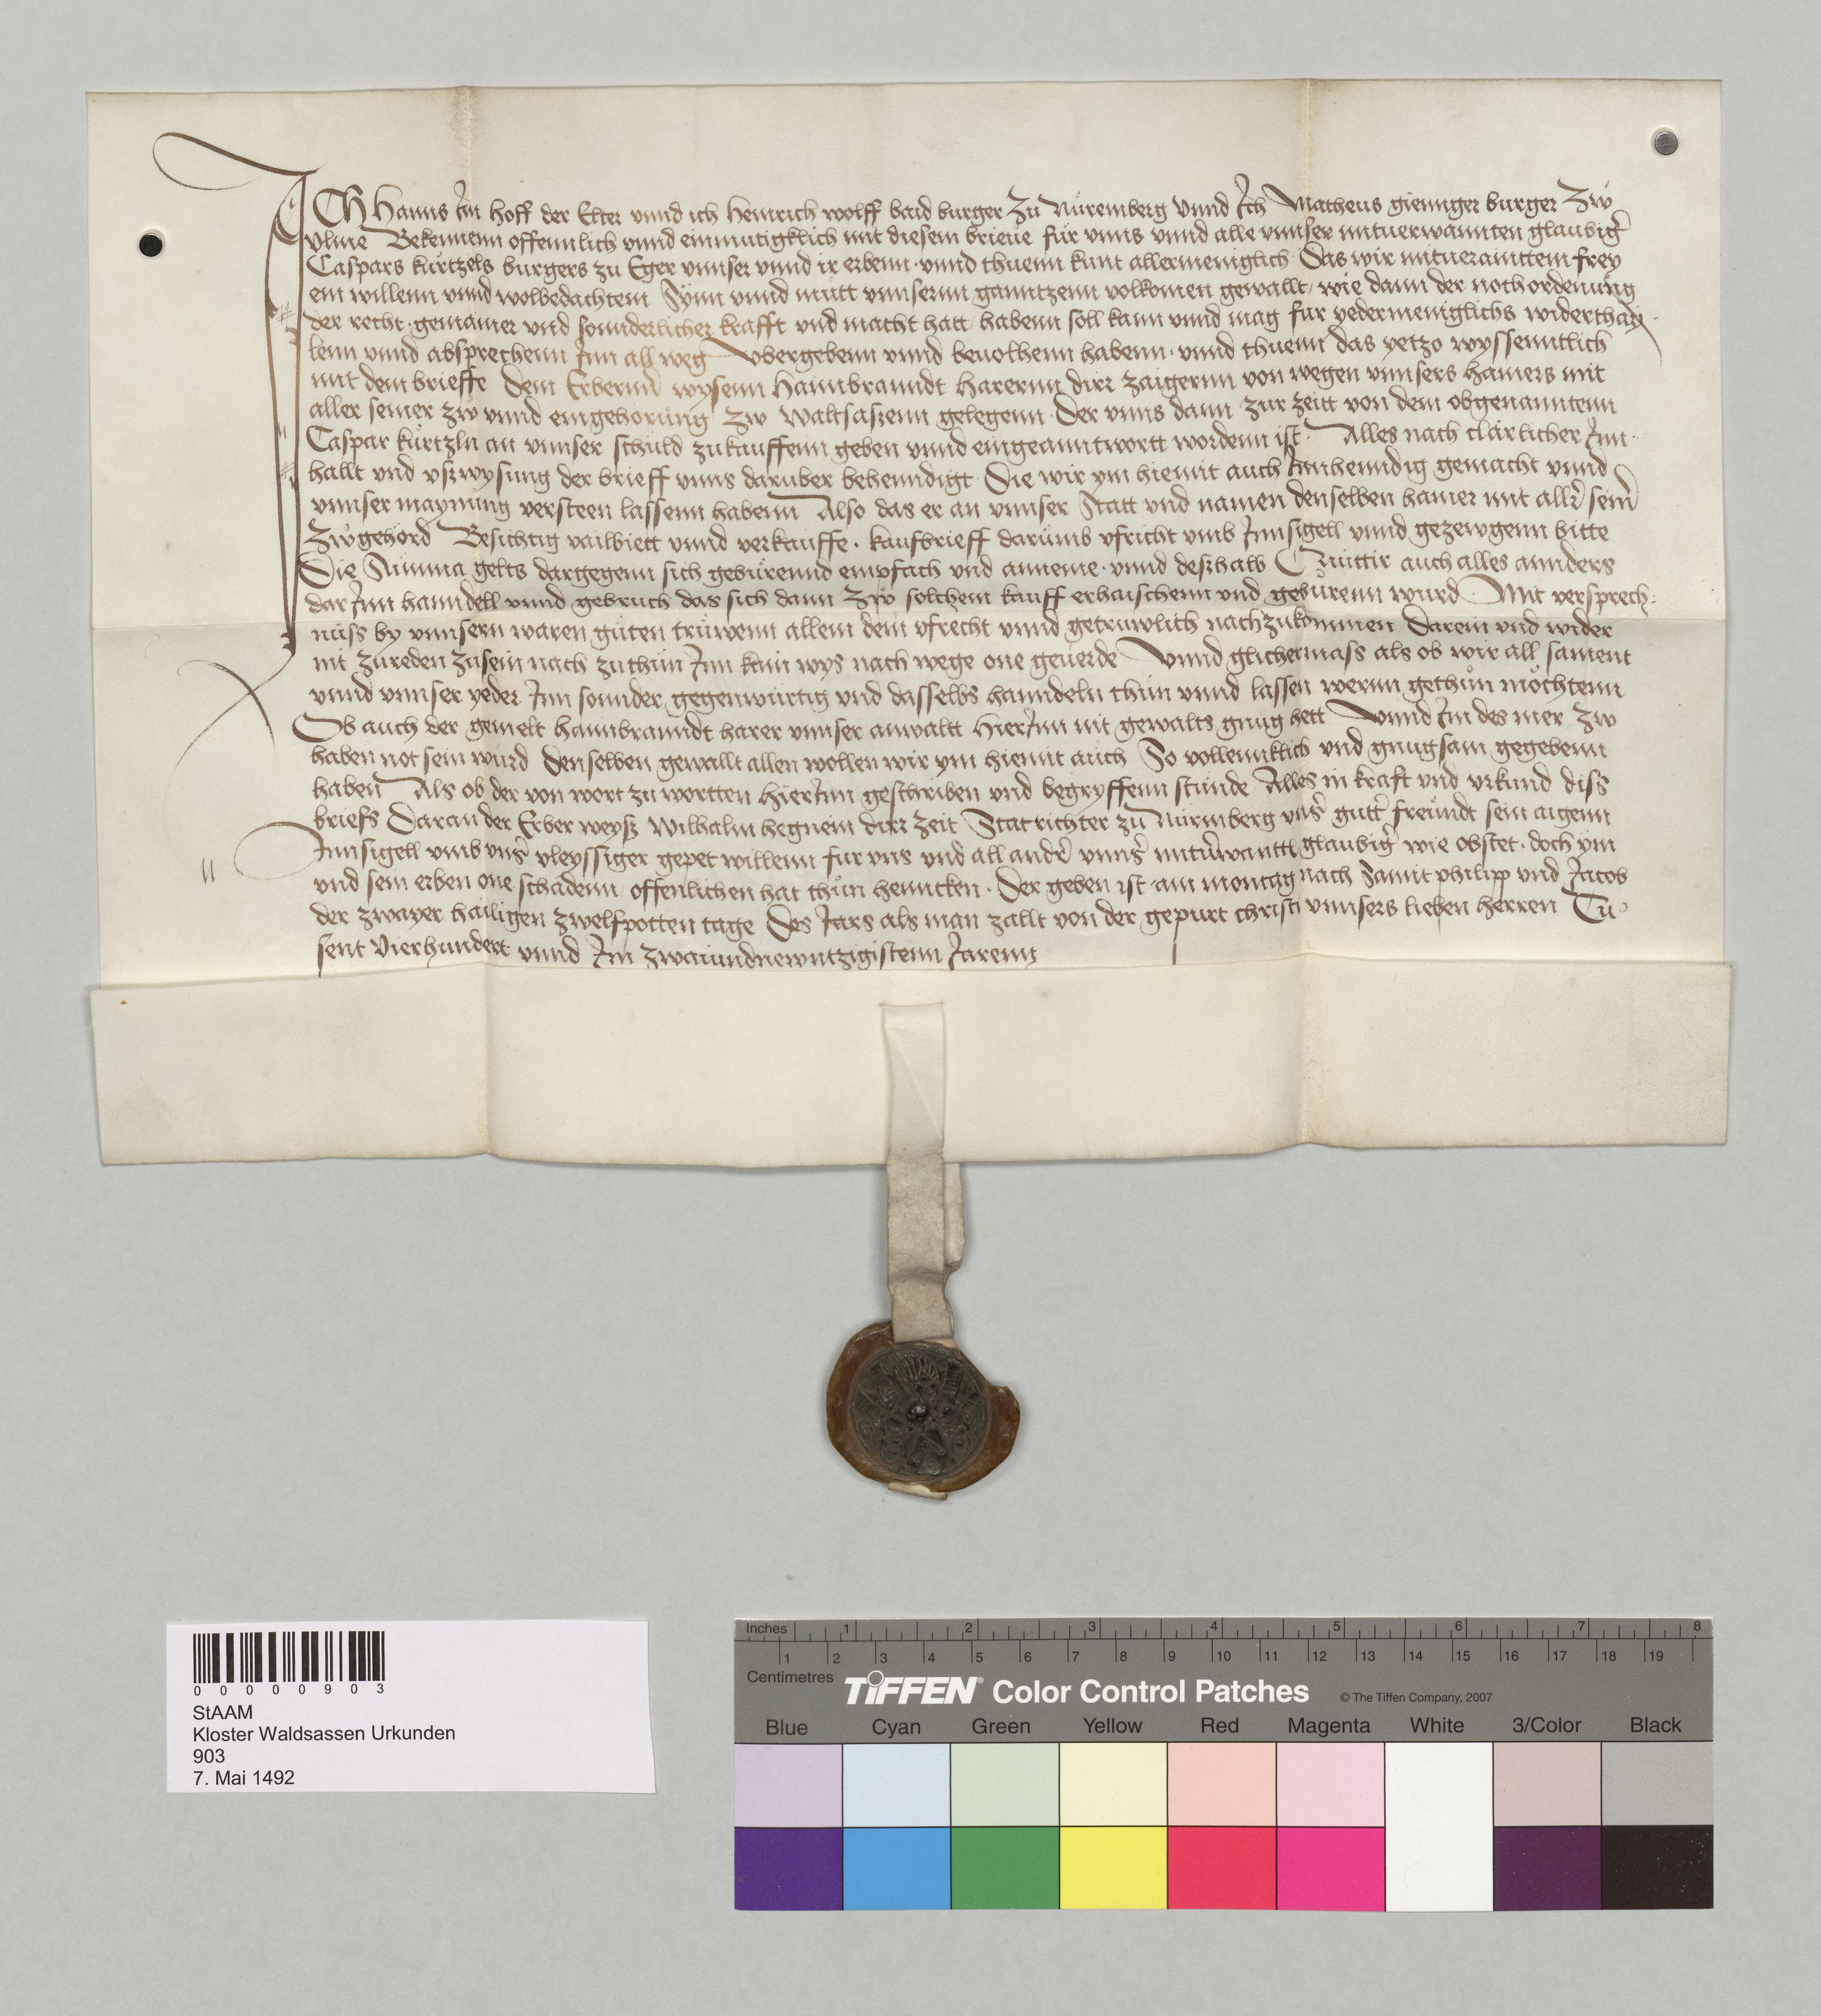 ICH Hanns Im Hoff der Elter vnnd ich Heinrich wolff baid burger Zu Nuremberg Vnnd Ich Matheus gienger burger Zw
vlme Bekennenn offennlich vnnd einmutigklich mit diesem brieue für vnns vnnd alle vnnser mituerwannten glaubigr̄
Caspars kurtzels burgers zu Eger vnnser vnnd ir erbenn· vnnd thuenn kunt allermeniglich Das wir mit frey
em willenn vnnd wolbedachtem Synn vnnd mutt vnnsernn ganntzenn volkomen gewallt wie dann der noth ordenung
der recht gemainer vnd sonnderlicher krafft vnd macht hatt habenn soll kann vnnd mag für yedermeniglichs widerthay
lenn vnnd absprechenn Inn all weg Vbergebenn vnnd beuolhenn habenn· vnnd thuenn das yetzo wyssenntlich
mit dem brieffe Dem Erbernn wysenn Hannbranndt Harernn dirr zaigernn von wegen vnnsers hamers mit
aller seiner zw vnnd eingehorung zw Waltsaszenn gelegenn· Der vnns dann zur zeitt von dem obgenanntenn
Caspar kurtzln an vnnser schuld zukauffenn geben vnnd eingeanntwortt wordenn ist· Alles nach clarlicher Inn
hallt vnd vszwysung der brieff vnns daruber behenndigt Die wir ym hiemit auch Innhenndig gemacht vnnd
vnnser maynung versteen lassenn habenn Also das er an vnnser Statt vnd namen denselben hamer mit allr̄ seinr̄
Zwgehord Besichtig vailbiett vnnd verkauffe· kaufbrieff darumb vfricht vmb Innsigell vnnd gezewgenn bitte
Die Summa gelts dargegenn sich geburennd empfach vnd anneme· vnnd deszhalb Quittir auch alles annders
dar Inn hanndell vnnd gebruch das sich dann Zw solchem kauff erhaischenn vnd geburenn wurd· Mit versprech
nuss by vnnsern waren guten truwenn allem dem vfrecht vnnd getruwlich nachzukommen Darein vnd wider
nit zureden zusein nach zuthun Inn kain wys nach wege one geuerde Vnnd glichermass als ob wir all sament
vnnd vnnser yeder Inn sonnder gegenwurtig vnd dasselbs hanndeln thun vnnd lassen wernn gethun mochtenn
Ob auch der gemelt hannbranndt harer vnnser anwaltt HierInn nit gewalts gnug hett Vnnd Im des mer zw
haben not sein wurd Denselben gewallt allen wollen wir ym hiemit auch So vollennklich vnd gnugsam gegebenn
haben Als ob der von wort zu wortten HierInn geschriben vnd begryffenn stunde Alles in kraft vnd vrkund diss
briefs Daran der Erber weysz Wilhalm hegnein dirr Zeit Statrichter zu Nurmberg vnsr̄ guttr̄ freundt sein aigenn
Innsigell vmb vnsr̄ vleyssiger gepet willenn fur vns vnd all andr̄ vnnsr̄ glaubigr̄ wie obstet· doch ym
vnd sein erben one schadenn offenlichen hat thun henncken· Der geben ist am montag nach Sannt philipp vnd Jacob
der zwayer hailigen zwelfpotten tage Des Jars als man zallt von der gepurt christi vnnsers lieben herren Tu
sent Vierhundert vnnd Im zwaiundnewntzigistenn Jarenn
00000903
StAAM
Kloster Waldsassen Urkunden
903
7. Mai 1492
Inches 1 2 3 4 5 6 7 8
1 2 3 4 5 6 7 8 9 10 11 12 13 14 15 16 17 18 19
Centimetres
TIFFEN® Color Control Patches © The Tiffen Company, 2007
Blue Cyan Green Yellow Red Magenta White 3/Color Black